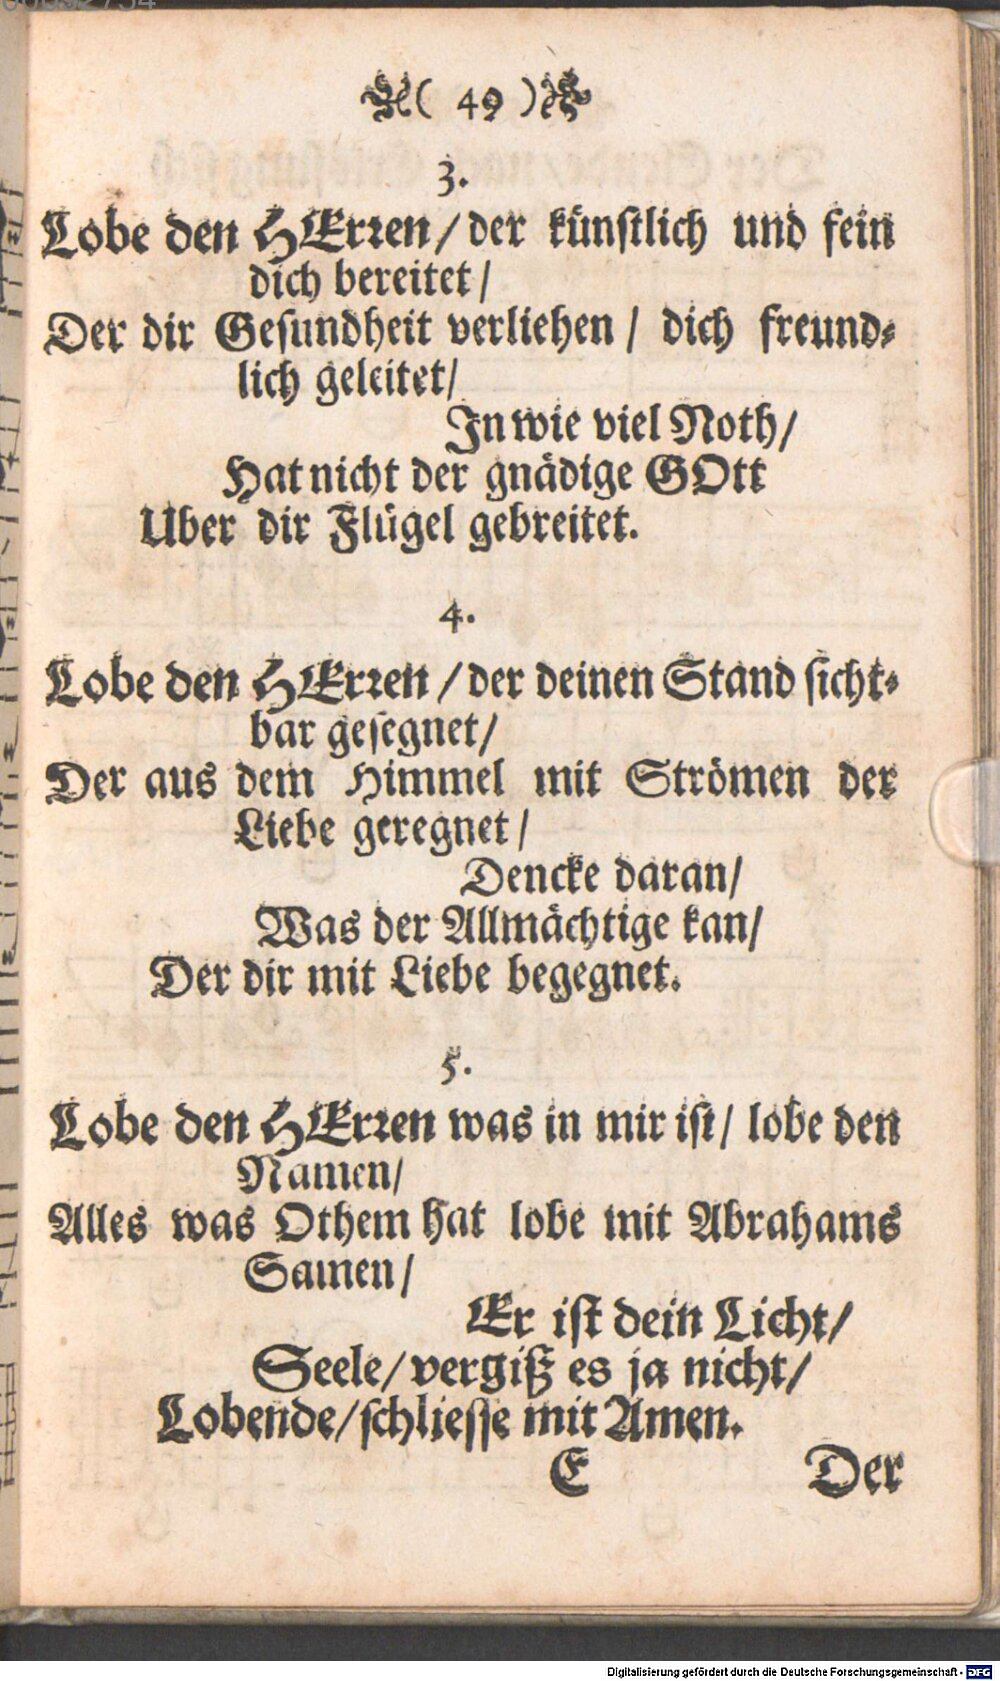 ( 49 )
3.
Lobe den HErren/der künstlich und fein
dich bereitet/
Der dir Gesundheit verliehen/ dich freund-
lich geleitet/
In wie viel Noth/
Hat nicht der gnädige GOtt
Uber dir Flügel gebreitet.
4.
Lobe den HErren/der deinen Stand sicht-
bar gesegnet/
Der aus dem Himmel mit Strömen der
Liebe geregnet/
Dencke daran/
Was der Allmächtige kan/
Der dir mit Liebe begegnet.
5.
Lobe den HErren was in mir ist/ lobe den
Namen/
Alles was Othem hat lobe mit Abrahams
Samen/
Er ist dein Licht/
Seele/vergiß es ja nicht/
Lobende/schliesse mit Amen.
E Der
Digitalisierung gefördert durch die Deutsche Forschungsgemeinschaft - DFG